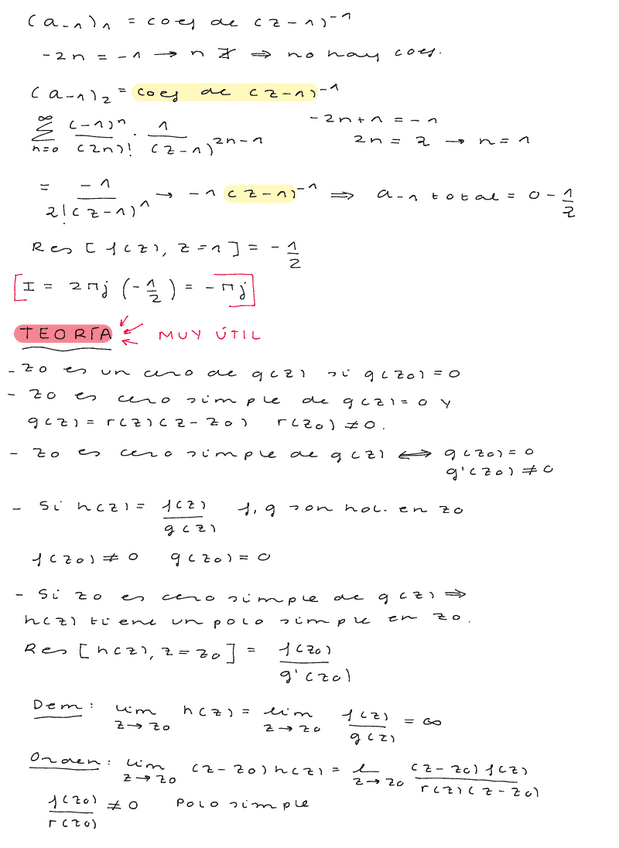 (a₋₁)₁ = coef de (z-1)⁻¹
-2n = -1 → n ∄ ⇒ no hay coef.
(a₋₁)₂ = coef de (z-1)⁻¹
∞ Σ n=0 (-1)ⁿ/(2n)! · 1/(z-1)²ⁿ⁻¹   -2n+1 = -1
2n = 2 → n = 1
= -1/2!(z-1)¹ → -1 (z-1)⁻¹ ⇒ a₋₁ total = 0 - 1/2
Res [f(z), z=1] = -1/2
[I = 2πj (-1/2) = -πj]
TEORÍA MUY ÚTIL
- z0 es un cero de g(z) si g(z0) = 0
- z0 es cero simple de g(z) = 0 y
g(z) = r(z)(z-z0)   r(z0) ≠ 0.
- z0 es cero simple de g(z) ⟺ g(z0) = 0
g'(z0) ≠ 0
- Si h(z) = f(z)/g(z)   f, g son hol. en z0
f(z0) ≠ 0   g(z0) = 0
- Si z0 es cero simple de g(z) ⇒
h(z) tiene un polo simple en z0.
Res [h(z), z=z0] = f(z0)/g'(z0)
Dem: lim z→z0 h(z) = lim z→z0 f(z)/g(z) = ∞
Orden: lim z→z0 (z-z0)h(z) = l z→z0 (z-z0)f(z)/r(z)(z-z0)
f(z0)/r(z0) ≠ 0   Polo simple